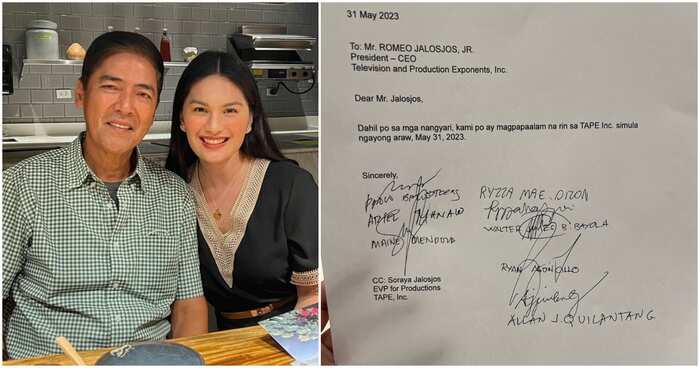 31 May 2023
To: Mr. ROMEO JALOSJOS, JR.
President – CEO
Television and Production Exponents, Inc.
Dear Mr. Jalosjos,
Dahil po sa mga nangyari, kami po ay magpapaalam na rin sa TAPE Inc. simula
ngayong araw, May 31, 2023.
Sincerely,
RYZZA MAE DIZON
MANALO
WALTER BAYOLA
MAINE MENDOZA
RYAN AGONCILLO
CC: Soraya Jalosjos
EVP for Productions
TAPE, Inc.
ALLAN J. QUILANTANG